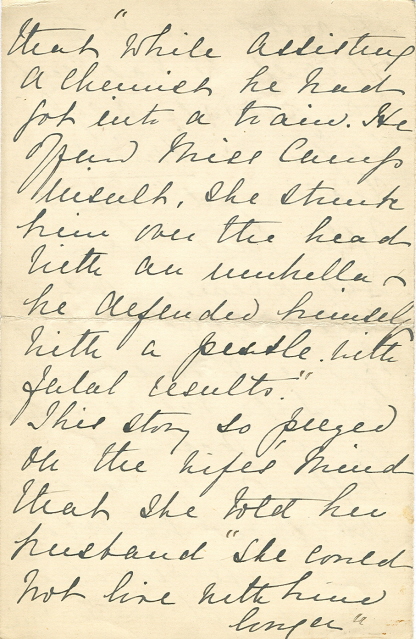 that "while assisting
a chemist he had
got into a train. He
offered Miss Camp
insult, she struck
him over the head
with an umbrella &
he defended himself
with a pestle with
fatal results."
This story so preyed
on the wife's mind
that she told her
husband "she could
not live with him
longer"